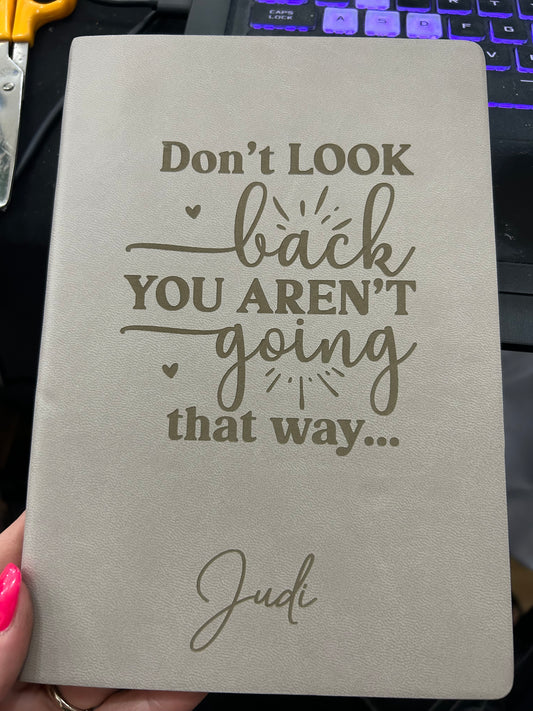 CAPS
LOCK
A
S
D
F
G
V
Don't LOOK
back
YOU AREN'T
going
that way...
Judi